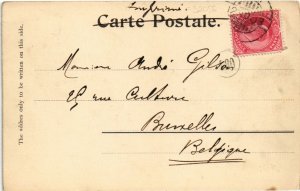 Imprimé
Carte Postale.
Monsieur André Gilson
rue Culture
Bruxelles
Belgique
The address only to be written on this side.